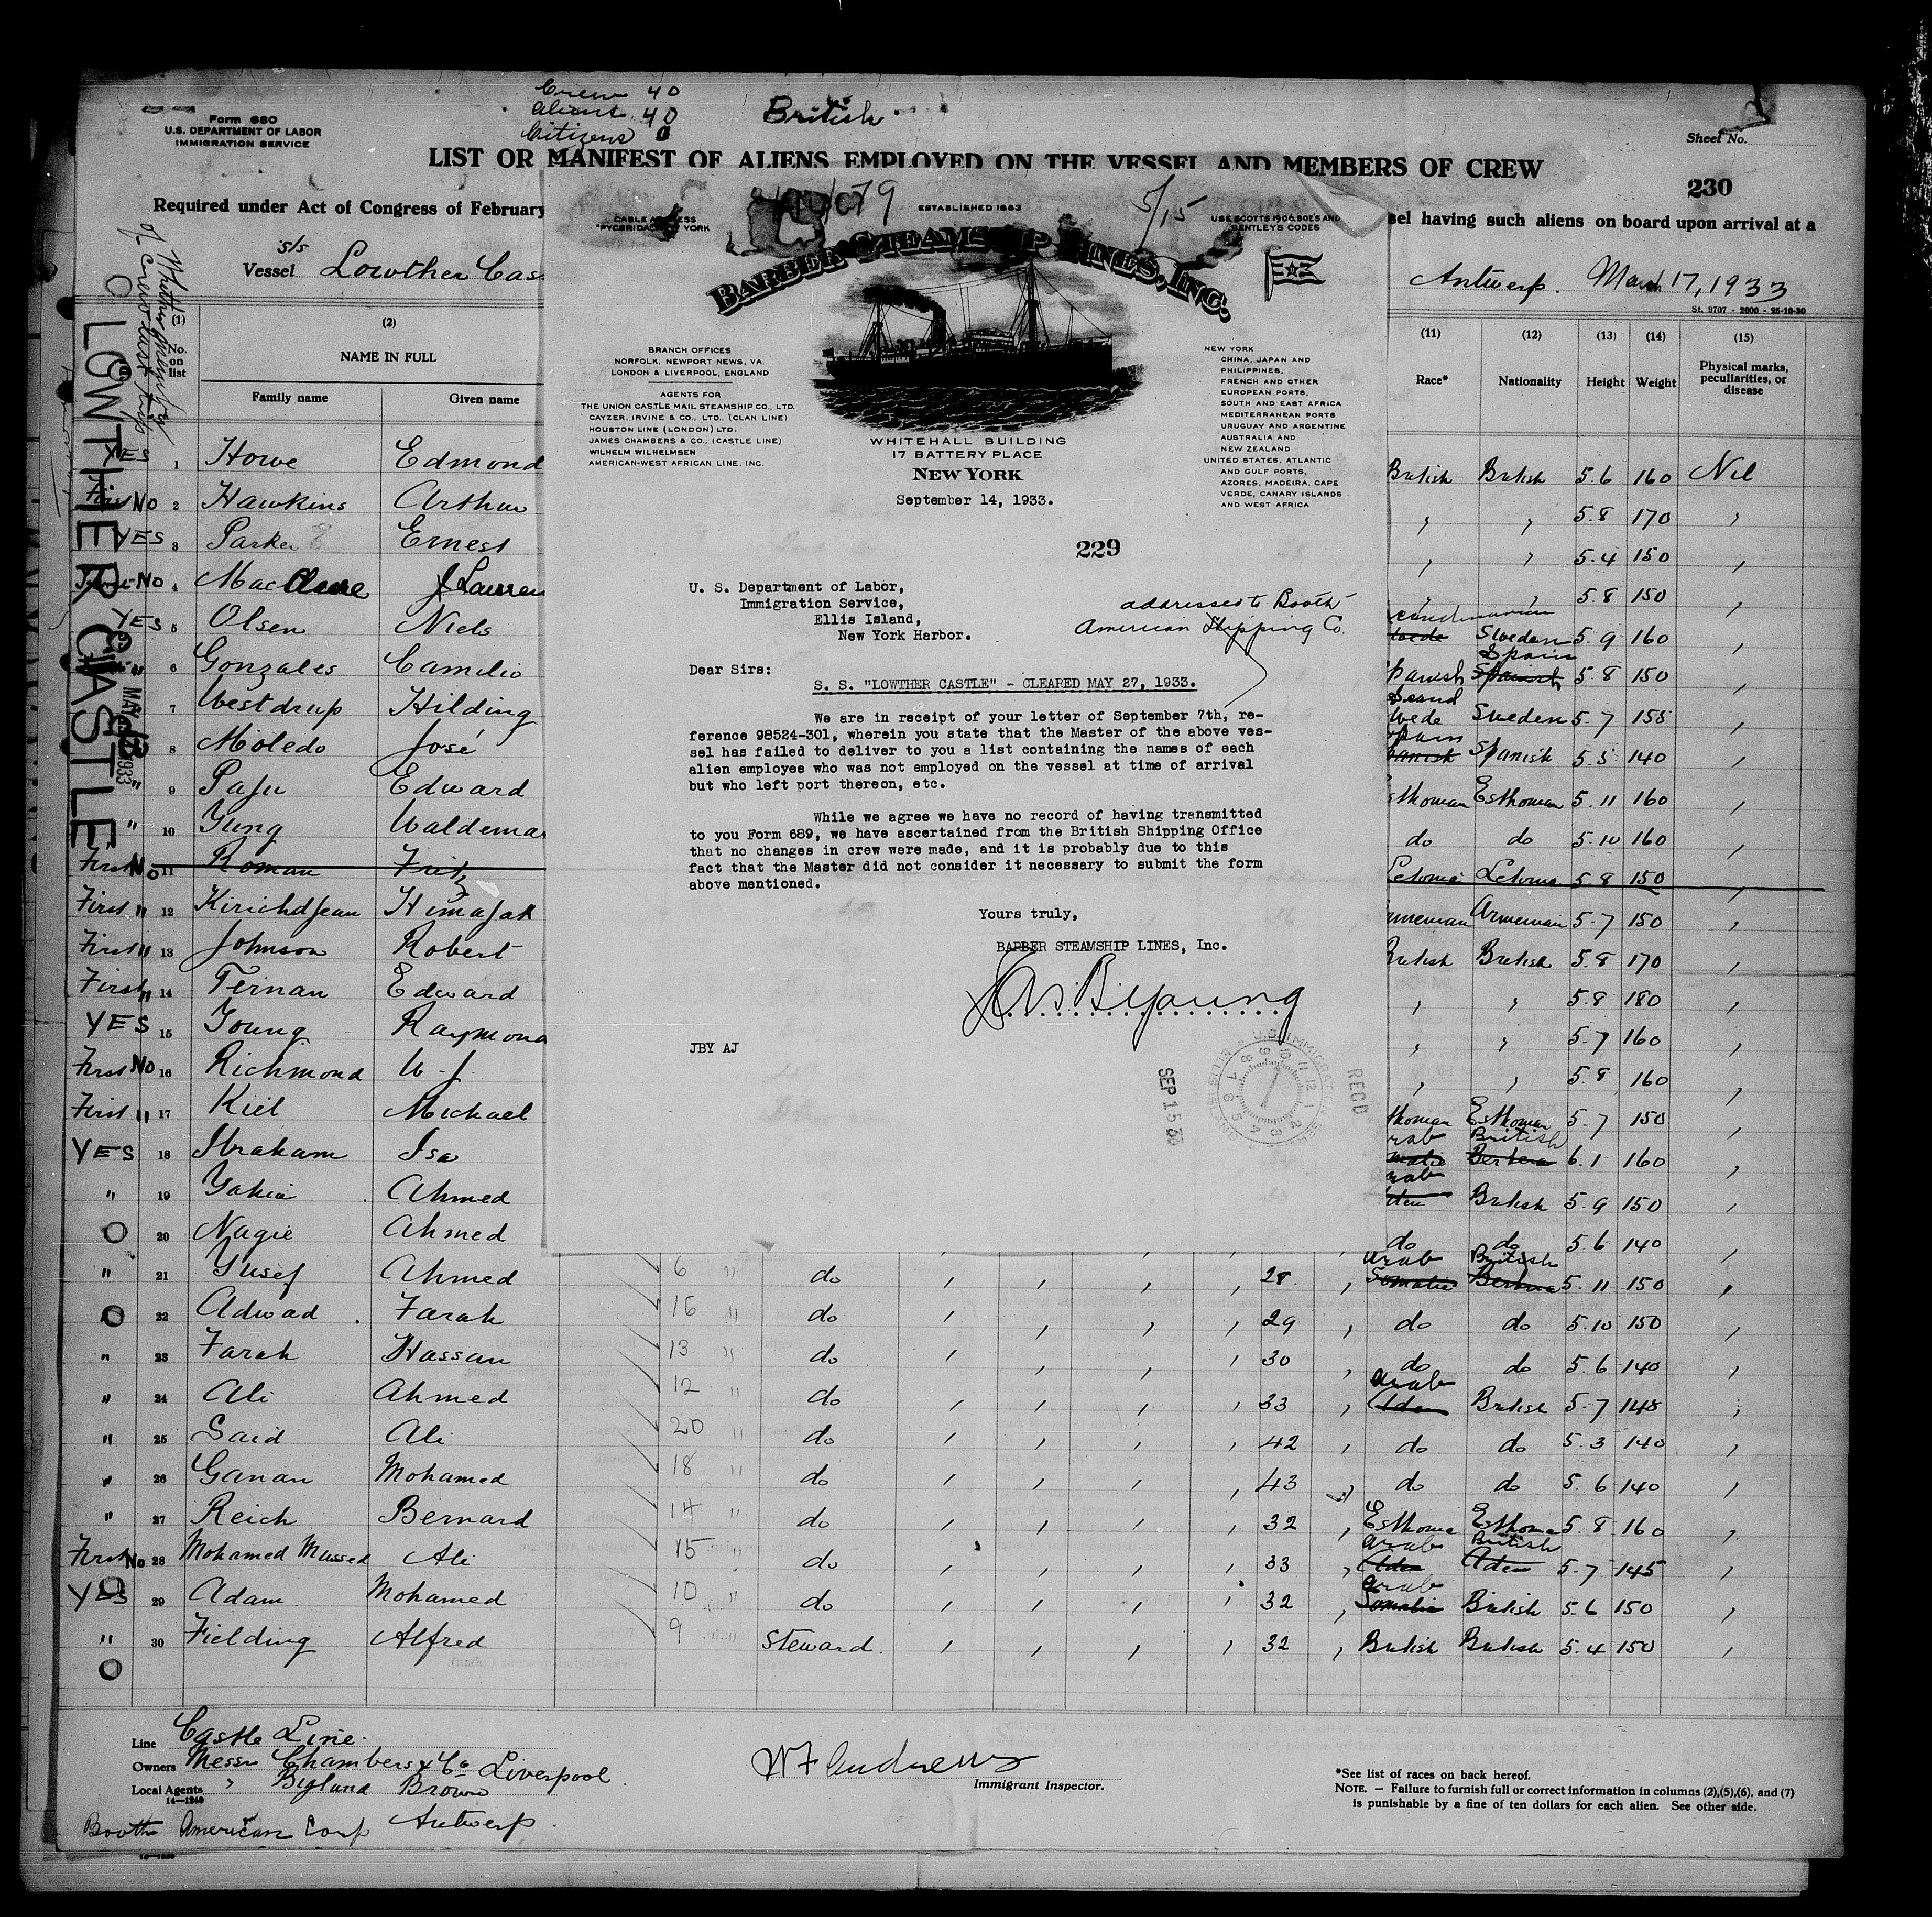 Crew 40
Aliens 40
Citizens 0
British
Form 680
U.S. DEPARTMENT OF LABOR
IMMIGRATION SERVICE
Sheet No.
LIST OR MANIFEST OF ALIENS EMPLOYED ON THE VESSEL AND MEMBERS OF CREW
230
Required under Act of Congress of February
sel having such aliens on board upon arrival at a
S/S
Vessel Lowther Cas
Antwerp. 17, 1933
St. 9707 - 2000 - 25-10-30
LOWTHER CASTLE
(1) No. on list
(2)
NAME IN FULL
Family name Given name
(11) (12) (13) (14) (15)
Race* Nationality Height Weight Physical marks, peculiarities, or disease
5/15
ESTABLISHED 1883
USE SCOTTS 1906, BOE'S AND
BENTLEY'S CODES
BARBER STEAMSHIP LINES, INC.
BRANCH OFFICES
NORFOLK, NEWPORT NEWS, VA.
LONDON & LIVERPOOL, ENGLAND
AGENTS FOR
THE UNION CASTLE MAIL STEAMSHIP CO., LTD.
CAYZER, IRVINE & CO., LTD., (CLAN LINE)
HOUSTON LINE (LONDON) LTD.
JAMES CHAMBERS & CO., (CASTLE LINE)
WILHELM WILHELMSEN
AMERICAN-WEST AFRICAN LINE, INC.
NEW YORK
CHINA, JAPAN AND
PHILIPPINES,
FRENCH AND OTHER
EUROPEAN PORTS,
SOUTH AND EAST AFRICA
MEDITERRANEAN PORTS
URUGUAY AND ARGENTINE
AUSTRALIA AND
NEW ZEALAND
UNITED STATES, ATLANTIC
AND GULF PORTS,
AZORES, MADEIRA, CAPE
VERDE, CANARY ISLANDS
AND WEST AFRICA
WHITEHALL BUILDING
17 BATTERY PLACE
NEW YORK
September 14, 1933.
229
U. S. Department of Labor,
Immigration Service,
Ellis Island,
New York Harbor.
addressed to Booth
American Shipping Co.
Dear Sirs:
S. S. "LOWTHER CASTLE" - CLEARED MAY 27, 1933.
We are in receipt of your letter of September 7th, re-
ference 98524-301, wherein you state that the Master of the above ves-
sel has failed to deliver to you a list containing the names of each
alien employee who was not employed on the vessel at time of arrival
but who left port thereon, etc.
While we agree we have no record of having transmitted
to you Form 689, we have ascertained from the British Shipping Office
that no changes in crew were made, and it is probably due to this
fact that the Master did not consider it necessary to submit the form
above mentioned.
Yours truly,
BARBER STEAMSHIP LINES, Inc.
JBY AJ
SEP 15 33
RECD
YES 1 Howe Edmond British British 5.6 160 Nil
First No 2 Hawkins Arthur 5.8 170
YES 3 Parker Ernest 5.4 150
No 4 Mac 5.8 150
YES 5 Olsen Niels Sweden 5.9 160
" 6 Gonzales Camilio panish Spain Spanish 5.8 150
7 Westdrup Hilding Scand wede Sweden 5.7 155
8 Moledo José Spanish 5.5 140
" 9 Paju Edward Esthonian 5.11 160
" 10 Yung Waldema do do 5.10 160
First No 11 Roman Fritz 5.8 150
First " 12 Armenian 5.7 150
First " 13 Johnson Robert British British 5.8 170
First " 14 Ternan Edward 5.8 180
YES 15 Young Raymond 5.7 160
First No 16 Richmond W. J. 5.8 160
First " 17 Kiel Michael Esthonian 5.7 150
YES 18 Ibraham Isa rab British Berbera 6.1 160
" 19 Yahia Ahmed rab British 5.9 150
20 Nagie Ahmed do do 5.6 140
" 21 Yusef Ahmed 6 " do 28 Arab Somalie British Berbera 5.11 150
22 Adwad Farah 16 " do 29 do do 5.10 150
" 23 Farah Hassan 13 " do 30 do do 5.6 140
" 24 Ali Ahmed 12 " do 33 Arab Aden British 5.7 148
" 25 Said Ali 20 " do 42 do do 5.3 140
" 26 Ganan Mohamed 18 " do 43 do do 5.6 140
" 27 Reich Bernard 14 " do 32 5.8 160
First No 28 Mohamed Mussed Ali 15 " do 33 Arab Aden British Aden 5.7 145
YES 29 Adam Mohamed 10 " do 32 Arab Somalie British 5.6 150
" 30 Fielding Alfred 9 Steward. 32 British British 5.4 150
Line Castle Line.
Owners Messrs Chambers & Co Liverpool.
Local Agents " Bigland Brown
14—1240
Booth American Corp Antwerp.
Immigrant Inspector.
*See list of races on back hereof.
NOTE. — Failure to furnish full or correct information in columns (2),(5),(6), and (7)
is punishable by a fine of ten dollars for each alien. See other side.